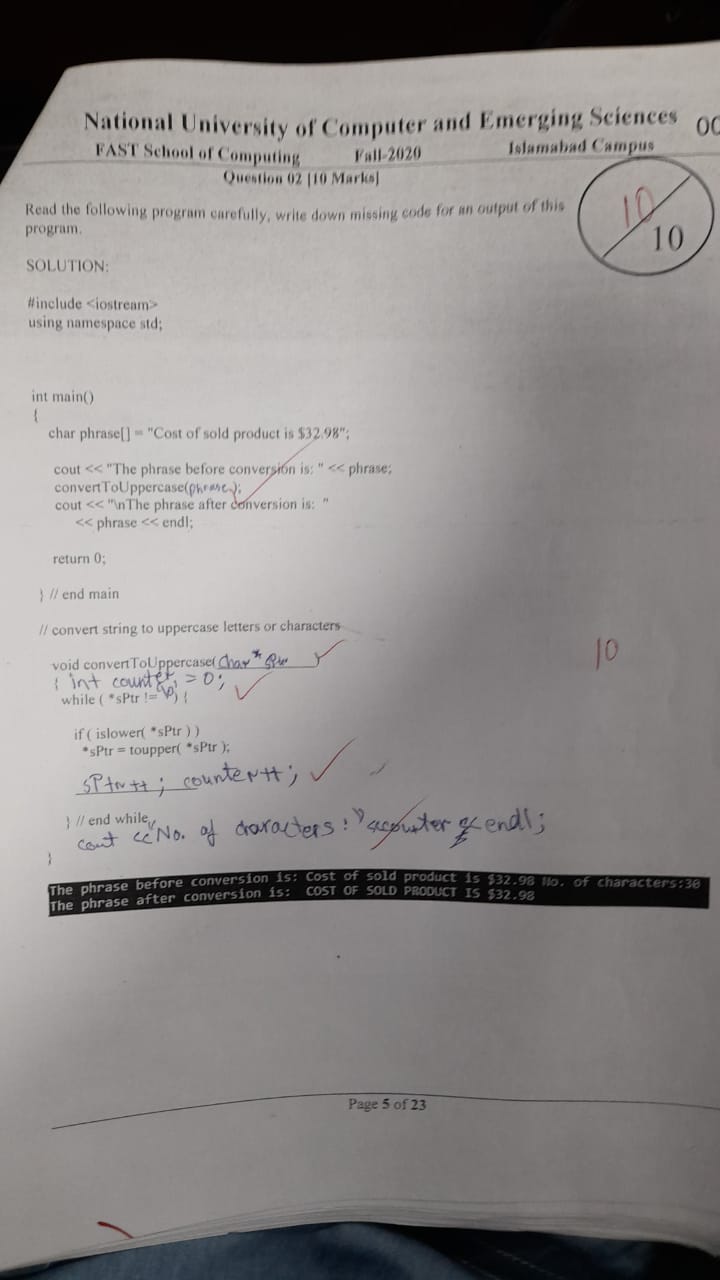 National University of Computer and Emerging Sciences
FAST School of Computing Fall-2020 Islamabad Campus
Question 02 [10 Marks]
10
10
Read the following program carefully, write down missing code for an output of this
program.
SOLUTION:
#include <iostream>
using namespace std;
int main()
{
char phrase[] = "Cost of sold product is $32.98";
cout << "The phrase before conversion is: " << phrase;
convertToUppercase(phrase);
cout << "\nThe phrase after conversion is: "
<< phrase << endl;
return 0;
} // end main
// convert string to uppercase letters or characters
10
void convertToUppercase( Char* sPtr )
{ int counter = 0;
while ( *sPtr != '\0') {
if ( islower( *sPtr ) )
*sPtr = toupper( *sPtr );
sPtr++; counter++;
} // end while
cout << "No. of characters:" <<counter << endl;
}
The phrase before conversion is: Cost of sold product is $32.98 No. of characters:30
The phrase after conversion is: COST OF SOLD PRODUCT IS $32.98
Page 5 of 23